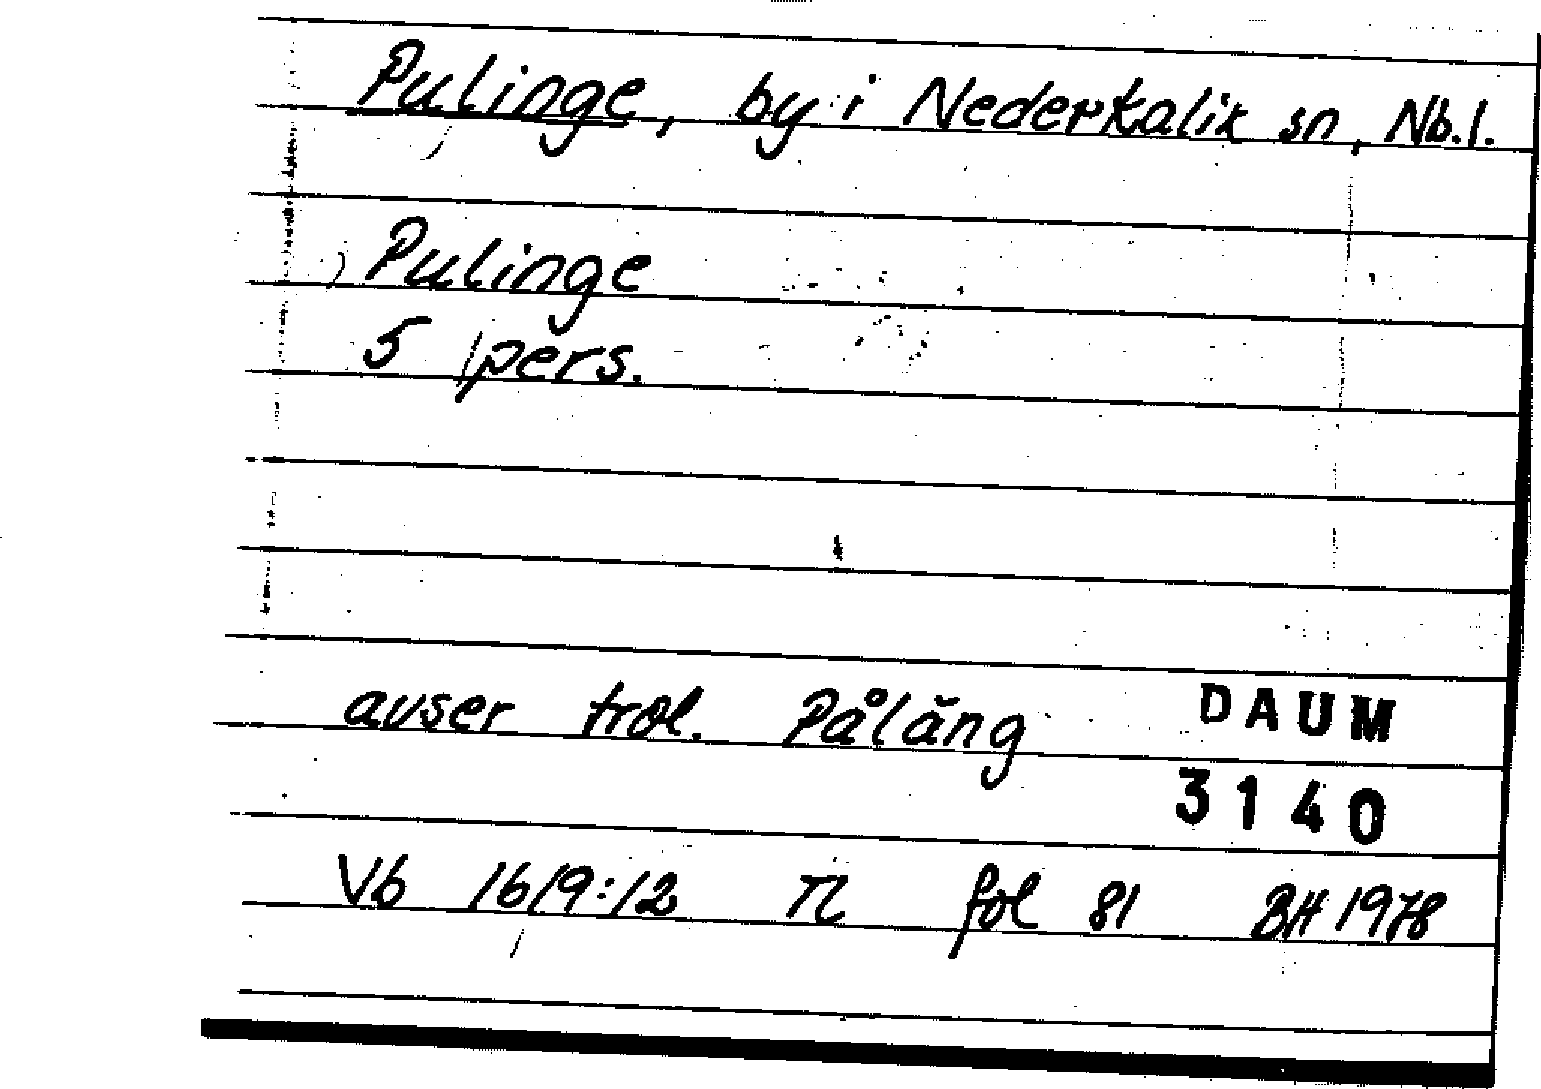 Pulinge, by i Nederkalix sn, Nb.l.
Pulinge
5 pers.
avser trol. Pålång
DAUM
3140
Vb 1619:12 TL fol 81 BH 1978